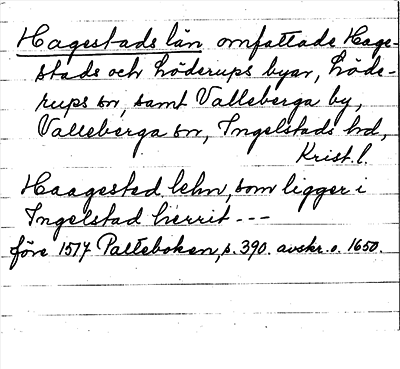 Hagestads län omfattade Hage-
stads och Löderups byar, Löde-
rups sn, samt Valleberga by,
Valleberga sn, Ingelstads hd,
Krist. l.
Haagested lehn, som ligger i
Ingelstad herrit - - -
före 1514 Palteboken, s. 390. avskr. o. 1650.